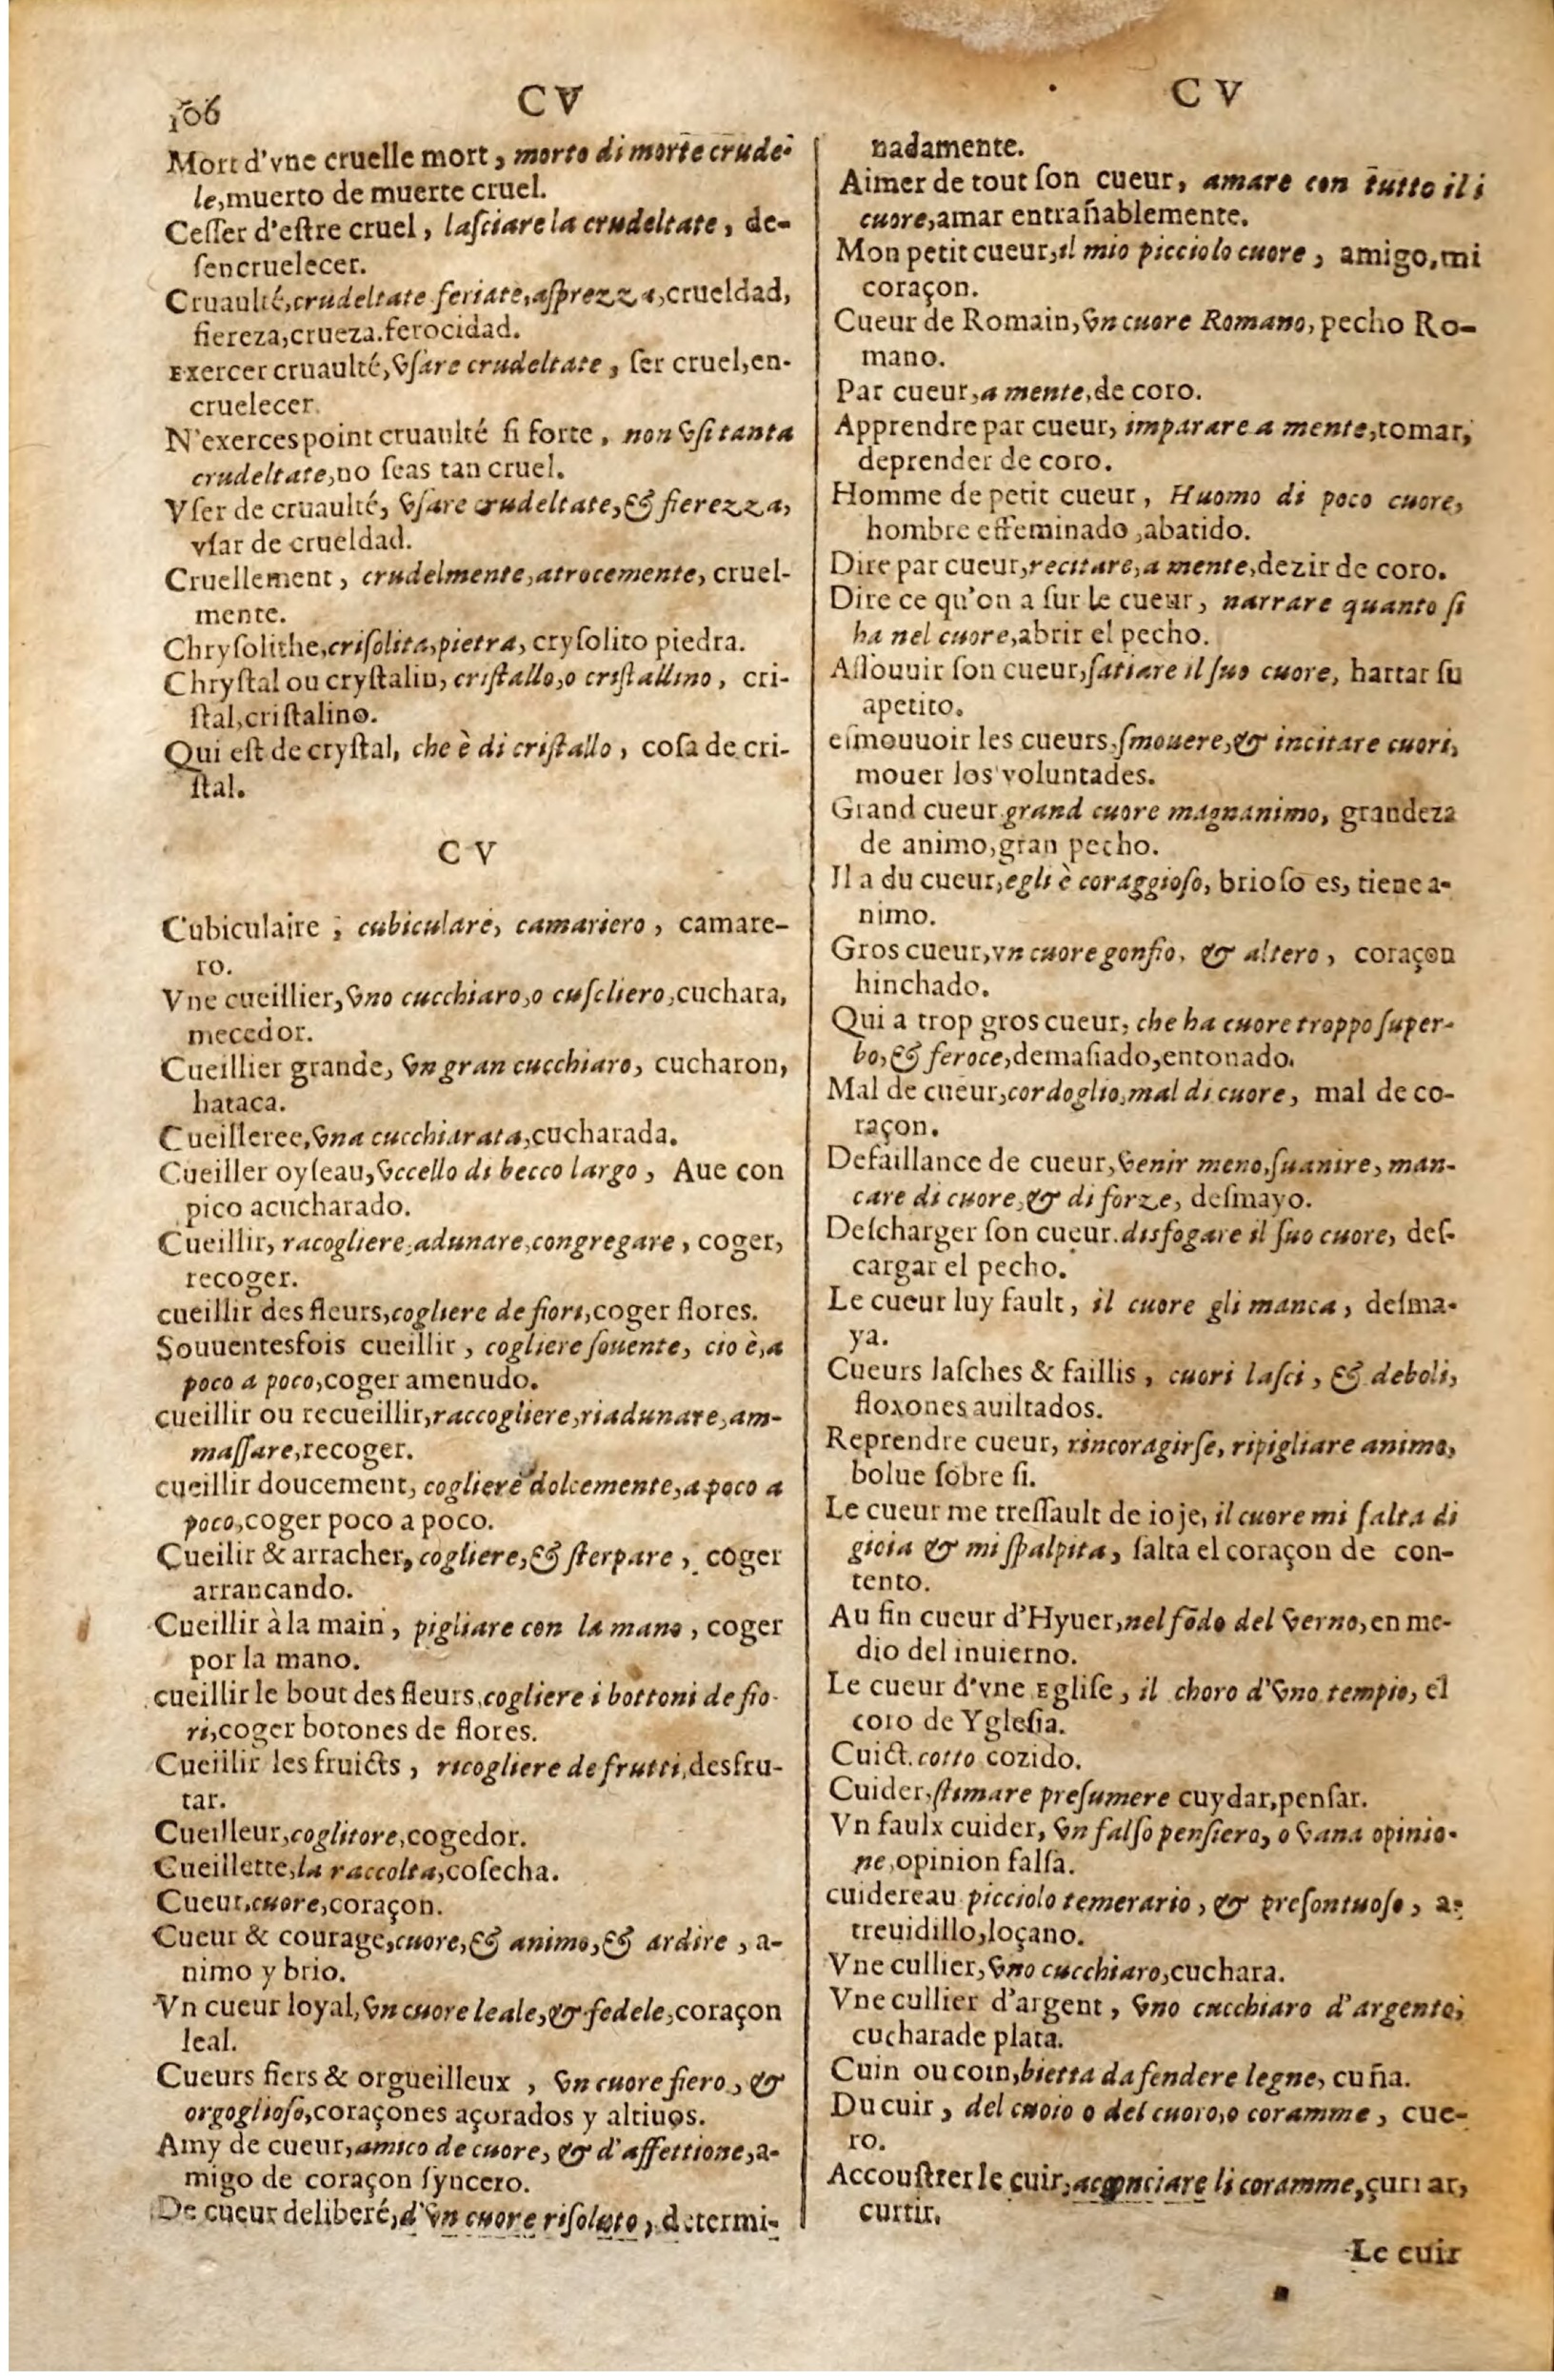 106
CV
Mort d'vne cruelle mort, morto di morte crude-
le,muerto de muerte cruel.
Cesser d'estre cruel, lasciare la crudeltate, de-
sencruelecer.
Cruaulté,crudeltate feriate,asprezza,crueldad,
fiereza,crueza.ferocidad.
Exercer cruaulté,vsare crudeltate, ser cruel,en-
cruelecer.
N'exerces point cruaulté si forte, non vsi tanta
crudeltate,no seas tan cruel.
Vser de cruaulté, vsare crudeltate,& fierezza,
vsar de crueldad.
Cruellement, crudelmente,atrocemente, cruel-
mente.
Chrysolithe,crisolita,pietra, crysolito piedra.
Chrystal ou crystalin, cristallo,o cristallino, cri-
stal,cristalino.
Qui est de crystal, che è di cristallo, cosa de cri-
stal.
CV
Cubiculaire, cubiculare, camariero, camare-
ro.
Vne cueillier,vno cucchiaro,o cuscliero,cuchara,
mecedor.
Cueillier grande, vn gran cucchiaro, cucharon,
hataca.
Cueilleree,vna cucchiarata,cucharada.
Cueiller oyseau,vccello di becco largo, Aue con
pico acucharado.
Cueillir, racogliere,adunare,congregare, coger,
recoger.
cueillir des fleurs,cogliere de fiori,coger flores.
Souuentesfois cueillir, cogliere souente, cio è,a
poco a poco,coger amenudo.
cueillir ou recueillir,raccogliere,riadunare,am-
massare,recoger.
cueillir doucement, cogliere dolcemente,a poco a
poco,coger poco a poco.
Cueilir & arracher, cogliere,& sterpare, coger
arrancando.
Cueillir à la main, pigliare con la mano, coger
por la mano.
cueillir le bout des fleurs,cogliere i bottoni de fio-
ri,coger botones de flores.
Cueiilir les fruicts, ricogliere de frutti,desfru-
tar.
Cueilleur,coglitore,cogedor.
Cueillette,la raccolta,cosecha.
Cueur,cuore,coraçon.
Cueur & courage,cuore,& animo,& ardire, a-
nimo y brio.
Vn cueur loyal,vn cuore leale,& fedele,coraçon
leal.
Cueurs fiers & orgueilleux, vn cuore fiero, &
orgoglioso,coraçones açorados y altiuos.
Amy de cueur,amico de cuore, & d'affettione,a-
migo de coraçon syncero.
De cueur deliberé,d'vn cuore risoluto, determi-
CV
nadamente.
Aimer de tout son cueur, amare con tutto il i
cuore,amar entrañablemente.
Mon petit cueur,il mio picciolo cuore, amigo,mi
coraçon.
Cueur de Romain,vn cuore Romano,pecho Ro-
mano.
Par cueur,a mente,de coro.
Apprendre par cueur, imparare a mente,tomar,
deprender de coro.
Homme de petit cueur, Huomo di poco cuore,
hombre effeminado,abatido.
Dire par cueur,recitare,a mente,dezir de coro.
Dire ce qu'on a sur le cueur, narrare quanto si
ha nel cuore,abrir el pecho.
Assouuir son cueur,satiare il suo cuore, hartar su
apetito.
esmouuoir les cueurs,smouere,& incitare cuori,
mouer los voluntades.
Grand cueur grand cuore magnanimo, grandeza
de animo,gran pecho.
Il a du cueur,egli è coraggioso, brioso es, tiene a-
nimo.
Gros cueur,vn cuore gonfio, & altero, coraçon
hinchado.
Qui a trop gros cueur, che ha cuore troppo super-
bo,& feroce,demasiado,entonado.
Mal de cueur,cordoglio,mal di cuore, mal de co-
raçon.
Defaillance de cueur,venir meno,suanire, man-
care di cuore,& di forze, desmayo.
Descharger son cueur.disfogare il suo cuore, des-
cargar el pecho.
Le cueur luy fault, il cuore gli manca, desma-
ya.
Cueurs lasches & faillis, cuori lasci, & deboli,
floxones auiltados.
Reprendre cueur, rincoragirse, ripigliare animo,
bolue sobre si.
Le cueur me tressault de ioje, il cuore mi salta di
gioia & mi spalpita, salta el coraçon de con-
tento.
Au fin cueur d'Hyuer,nel fōdo del verno,en me-
dio del inuierno.
Le cueur d'vne Eglise, il choro d'vno tempio, el
coro de Yglesia.
Cuict.cotto cozido.
Cuider,stimare presumere cuydar,pensar.
Vn faulx cuider, vn falso pensiero, o vana opinio-
ne,opinion falsa.
cuidereau picciolo temerario, & presontuoso, a-
treuidillo,loçano.
Vne cullier,vno cucchiaro,cuchara.
Vne cullier d'argent, vno cucchiaro d'argento,
cucharade plata.
Cuin ou coin,bietta da fendere legne, cuña.
Du cuir, del cuoio o del cuoro,o coramme, cue-
ro.
Accoustrer le cuir,acconciare li coramme,çurrar,
curtir.
Le cuir